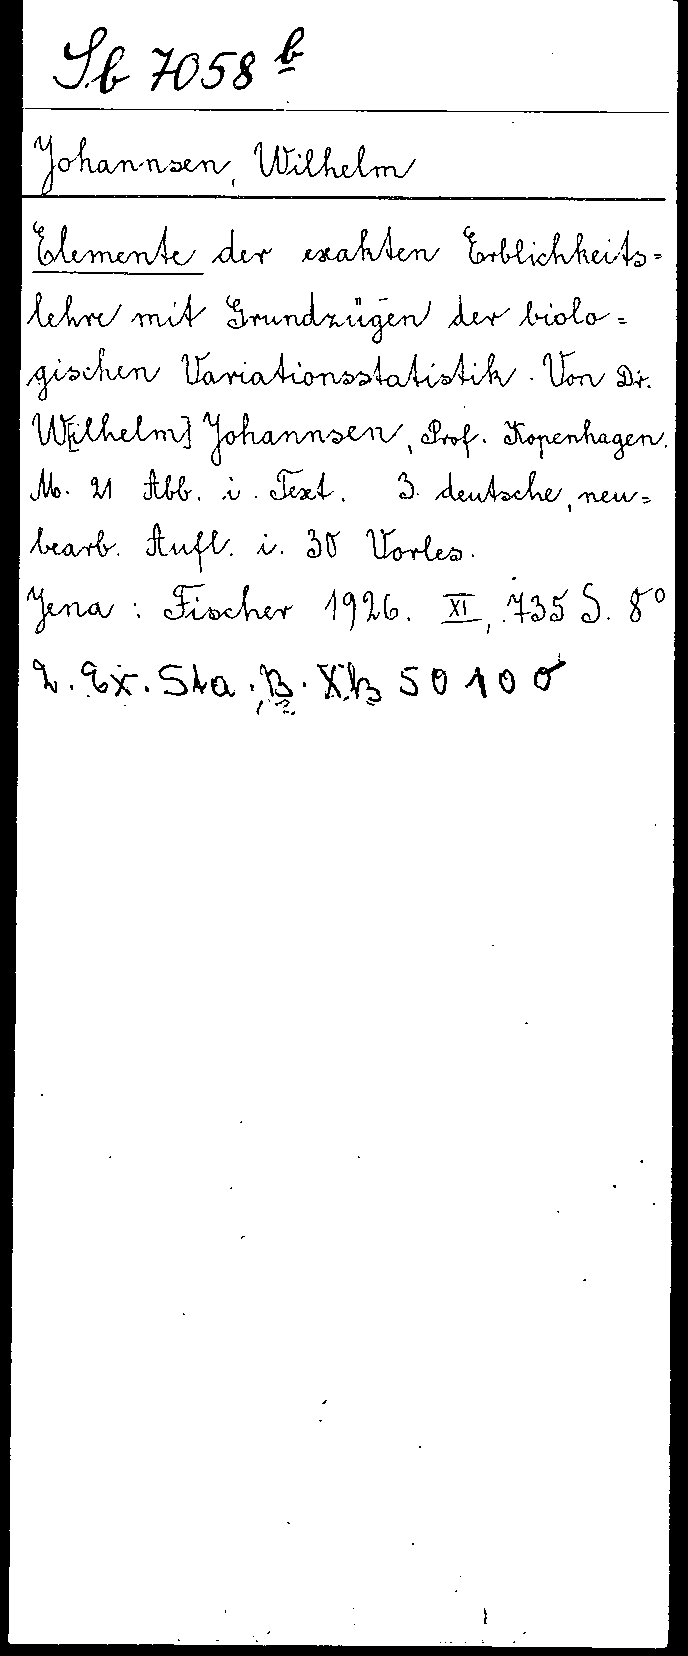 Sb 7058 b
Johannsen, Wilhelm
Elemente der exakten Erblichkeits=
lehre mit Grundzügen der biolo=
gischen Variationsstatistik. Von Dr.
W[ilhelm] Johannsen, Prof. Kopenhagen.
M. 21 Abb. i. Text. 3. deutsche, neu=
bearb. Aufl. i. 30 Vorles.
Jena: Fischer 1926. XI, 735 S. 8°
2. Ex. Sta. B. Xb 50100